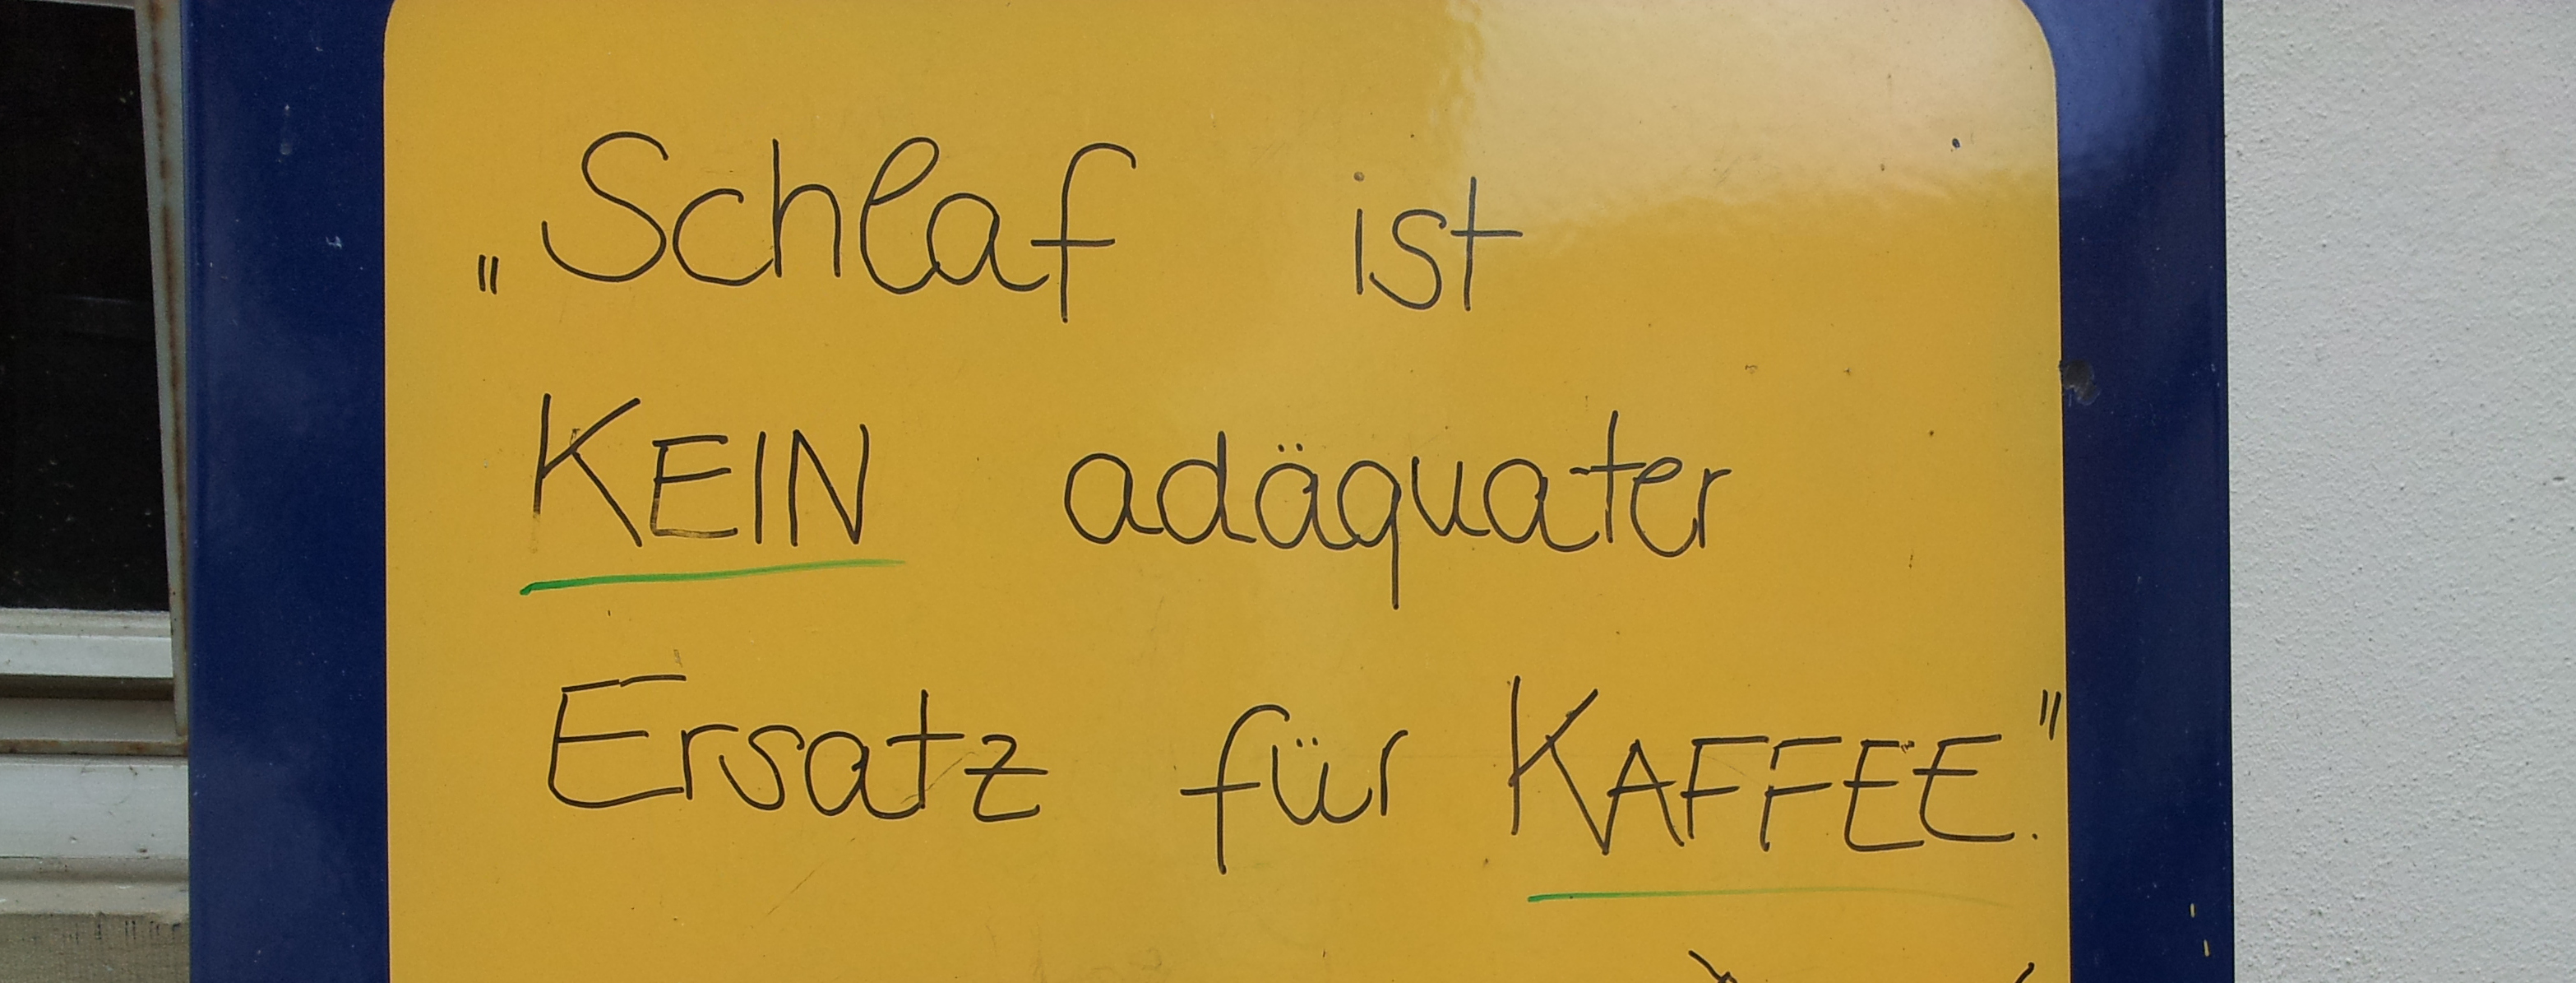 „Schlaf ist
KEIN adäquater
Ersatz für KAFFEE."